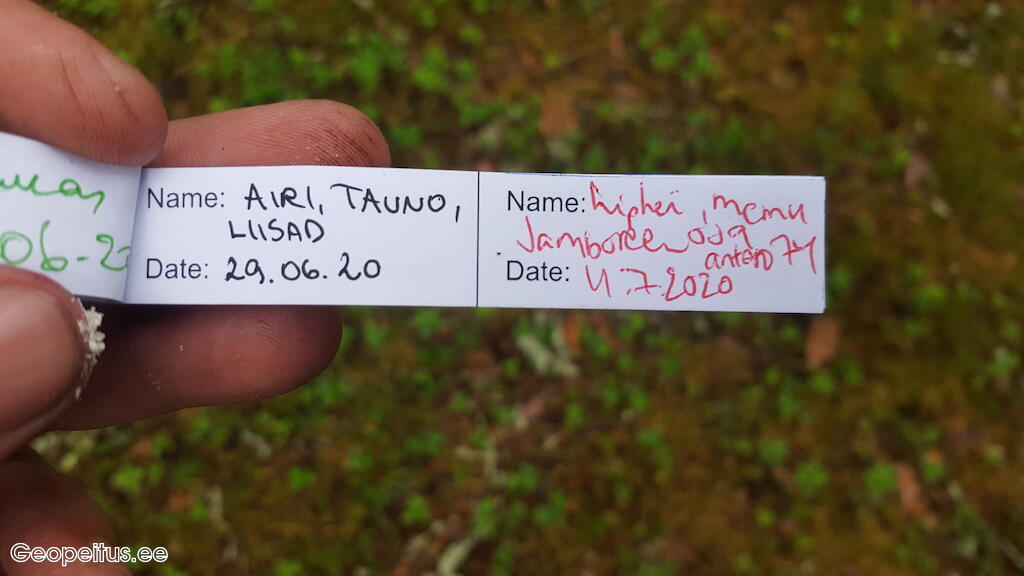 06-2
Name: AIRI, TAUNO,
LIISAD
Date: 29.06.20
Name: hiphei, memu
Jamboree osa
antero74
Date: 4.7.2020
Geopeitus.ee